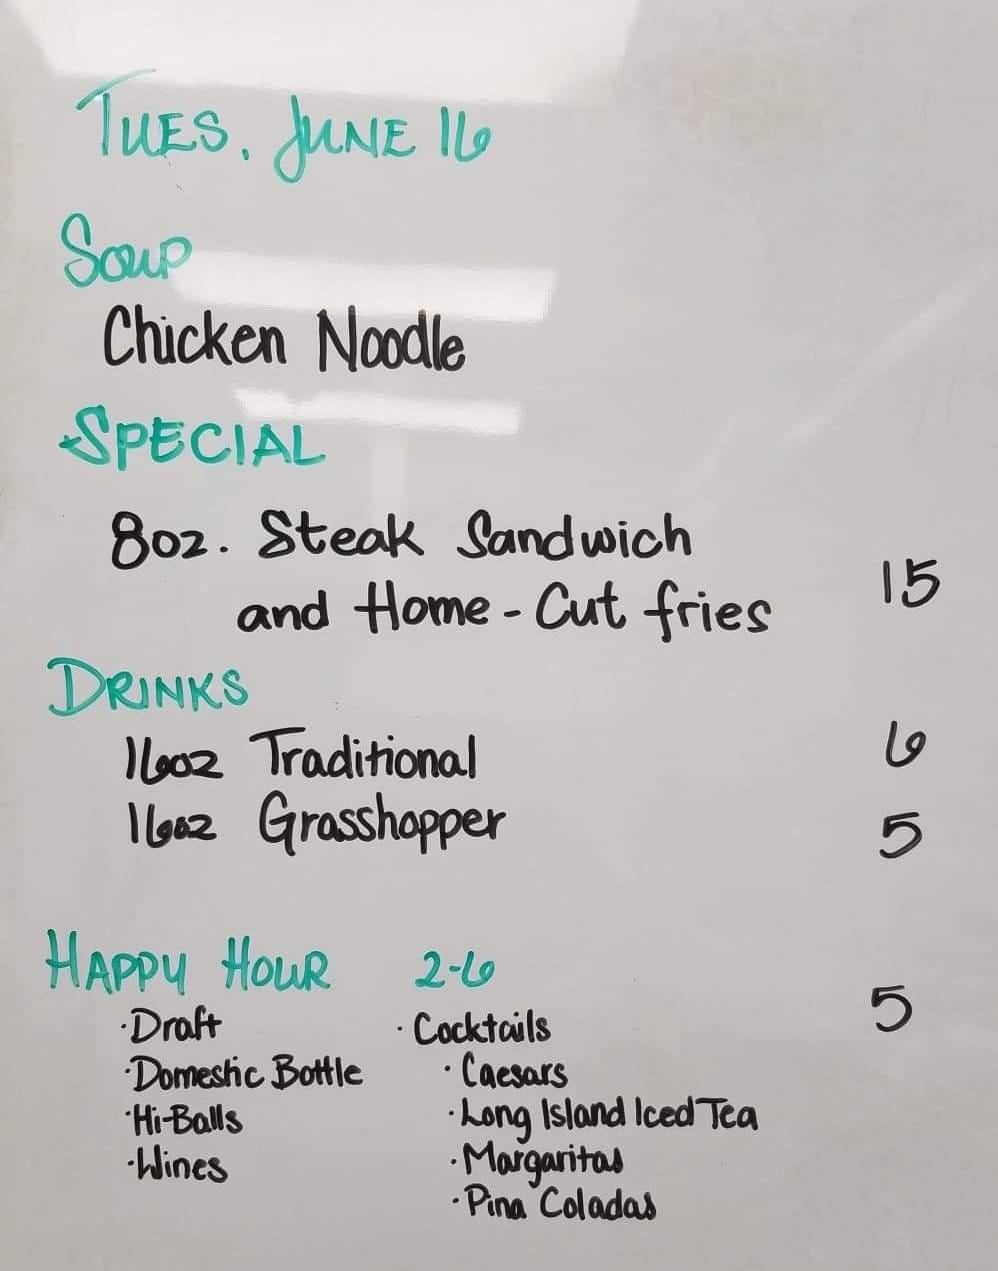 TUES. JUNE 16
Soup
Chicken Noodle
SPECIAL
8oz. Steak Sandwich
and Home-Cut fries 15
DRINKS
16oz Traditional 6
16oz Grasshopper 5
HAPPY HOUR 2-6 5
·Draft ·Cocktails
·Domestic Bottle ·Caesars
·Hi-Balls ·Long Island Iced Tea
·Wines ·Margaritas
·Pina Coladas